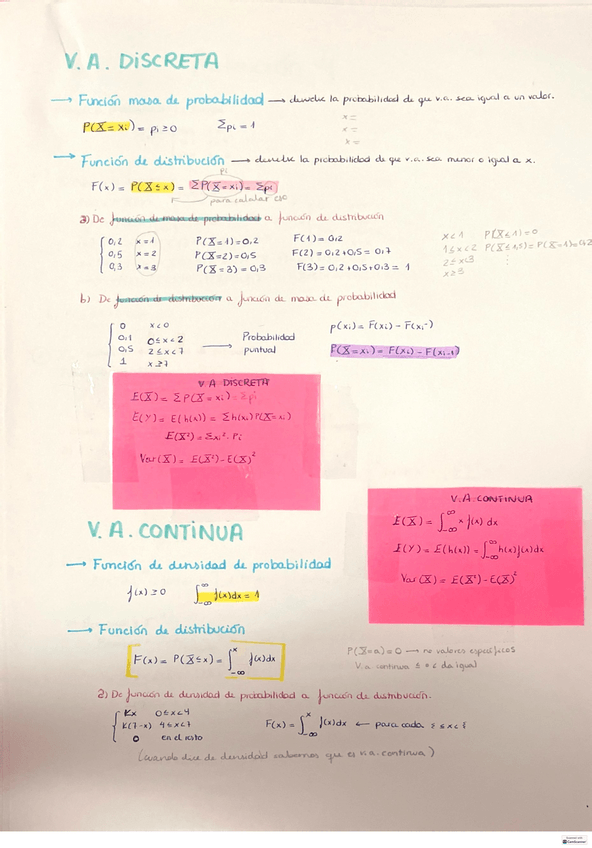 V.A. DISCRETA
→ Función masa de probabilidad → devuelve la probabilidad de que v.a. sea igual a un valor.
P(X = xi) = pi ≥ 0 Σpi = 1
x =
x =
x =
→ Función de distribución → devuelve la probabilidad de que v.a. sea menor o igual a x.
pi
F(x) = P(X ≤ x) = ΣP(X = xi) = Σpi
para calcular
a) De función de masa de probabilidad a función de distribución
0,2 x = 1 P(X = 1) = 0,2 F(1) = 0,2
0,5 x = 2 P(X = 2) = 0,5 F(2) = 0,2 + 0,5 = 0,7
0,3 x = 3 P(X = 3) = 0,3 F(3) = 0,2 + 0,5 + 0,3 = 1
x < 1 P(X ≤ 1) = 0
1 ≤ x < 2 P(X ≤ 1,5) = P(X = 1) = 0,2
2 ≤ x < 3 ⋮
x ≥ 3
b) De función de distribución a función de masa de probabilidad
0 x < 0
0,1 0 ≤ x < 2
0,5 2 ≤ x < 7
1 x ≥ 7
→ Probabilidad
puntual
p(xi) = F(xi) - F(xi-)
P(X = xi) = F(xi) - F(xi-1)
V.A DISCRETA
E(X) = ΣP(X = xi) = Σpi
E(Y) = E(h(x)) = Σh(xi)P(X = xi)
E(X²) = Σxi² · Pi
Var(X) = E(X²) - E(X)²
V.A. CONTINUA
E(X) = ∫_{-∞}^{∞} x f(x) dx
E(Y) = E(h(x)) = ∫_{-∞}^{∞} h(x)f(x)dx
Var(X) = E(X²) - E(X)²
V.A. CONTINUA
→ Función de densidad de probabilidad
f(x) ≥ 0 ∫_{-∞}^{∞} f(x)dx = 1
→ Función de distribución
F(x) = P(X ≤ x) = ∫_{-∞}^{x} f(x)dx
P(X = a) = 0 → no valores específicos
V.a continua ≤ o < da igual
2) De función de densidad de probabilidad a función de distribución.
Kx 0 ≤ x < 4
K(7-x) 4 ≤ x < 7
0 en el resto
F(x) = ∫_{-∞}^{x} f(x)dx ← para cada ≤ x <
(cuando dice de densidad sabemos que es v.a. continua)
CamScanner